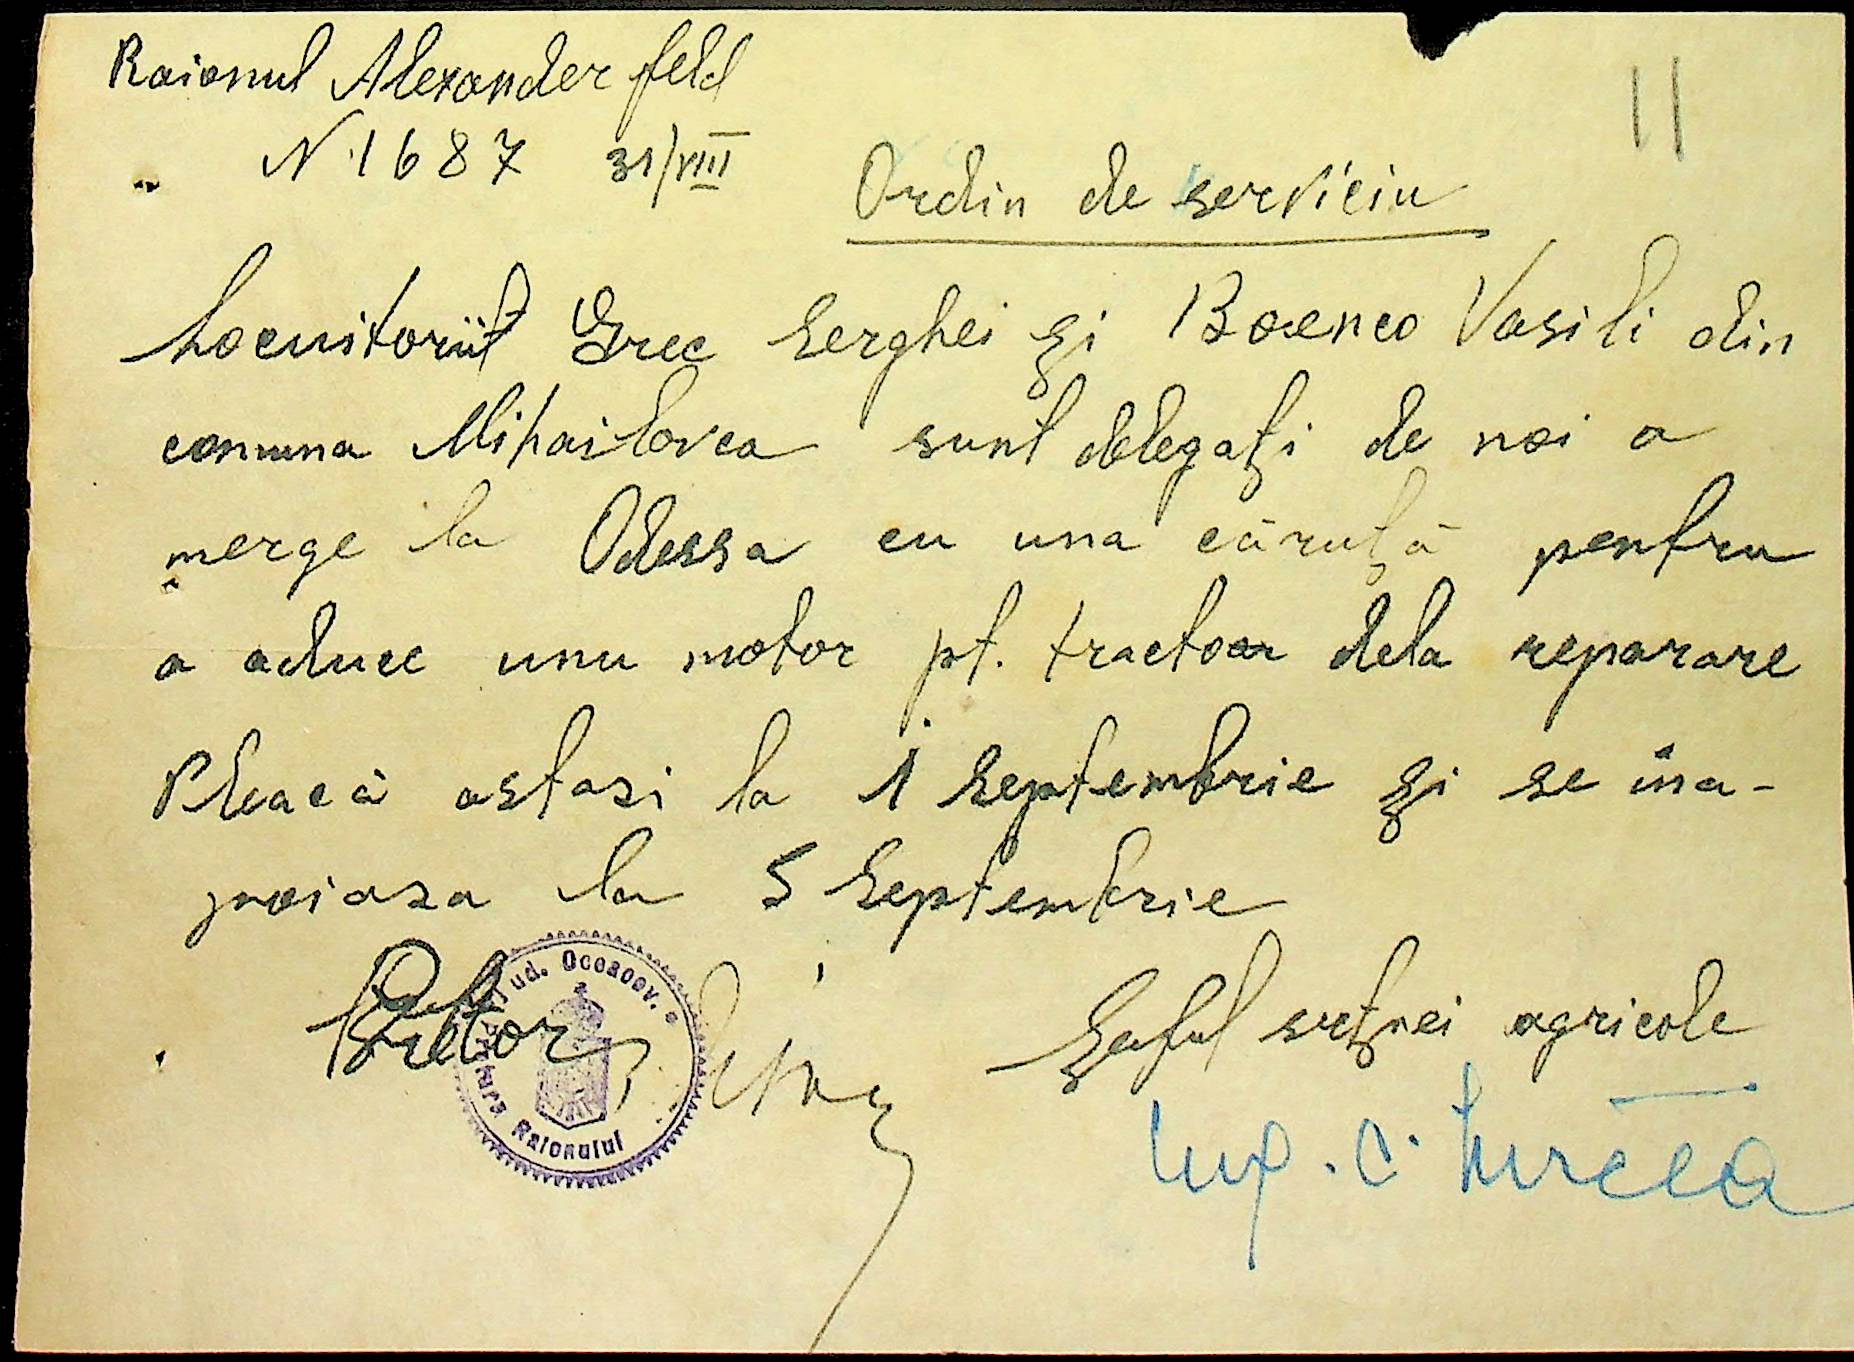 Raionul Alexanderfeld
N. 1687 31/VIII
11
Ordin de serviciu
Locuitorii Grec Serghei și Boenco Vasili din
comuna Mihailovca sunt delegați de noi a
merge la Odessa cu una căruță pentru
a aduce unu motor pt. tractoar dela reparare
Pleacă astasi la 1 Septembrie și se îna-
poiasa la 5 Septembrie
Pretor
Șeful secțnei agricole
Jud. Oceacov.
Raionului
Ing. C. Mircea